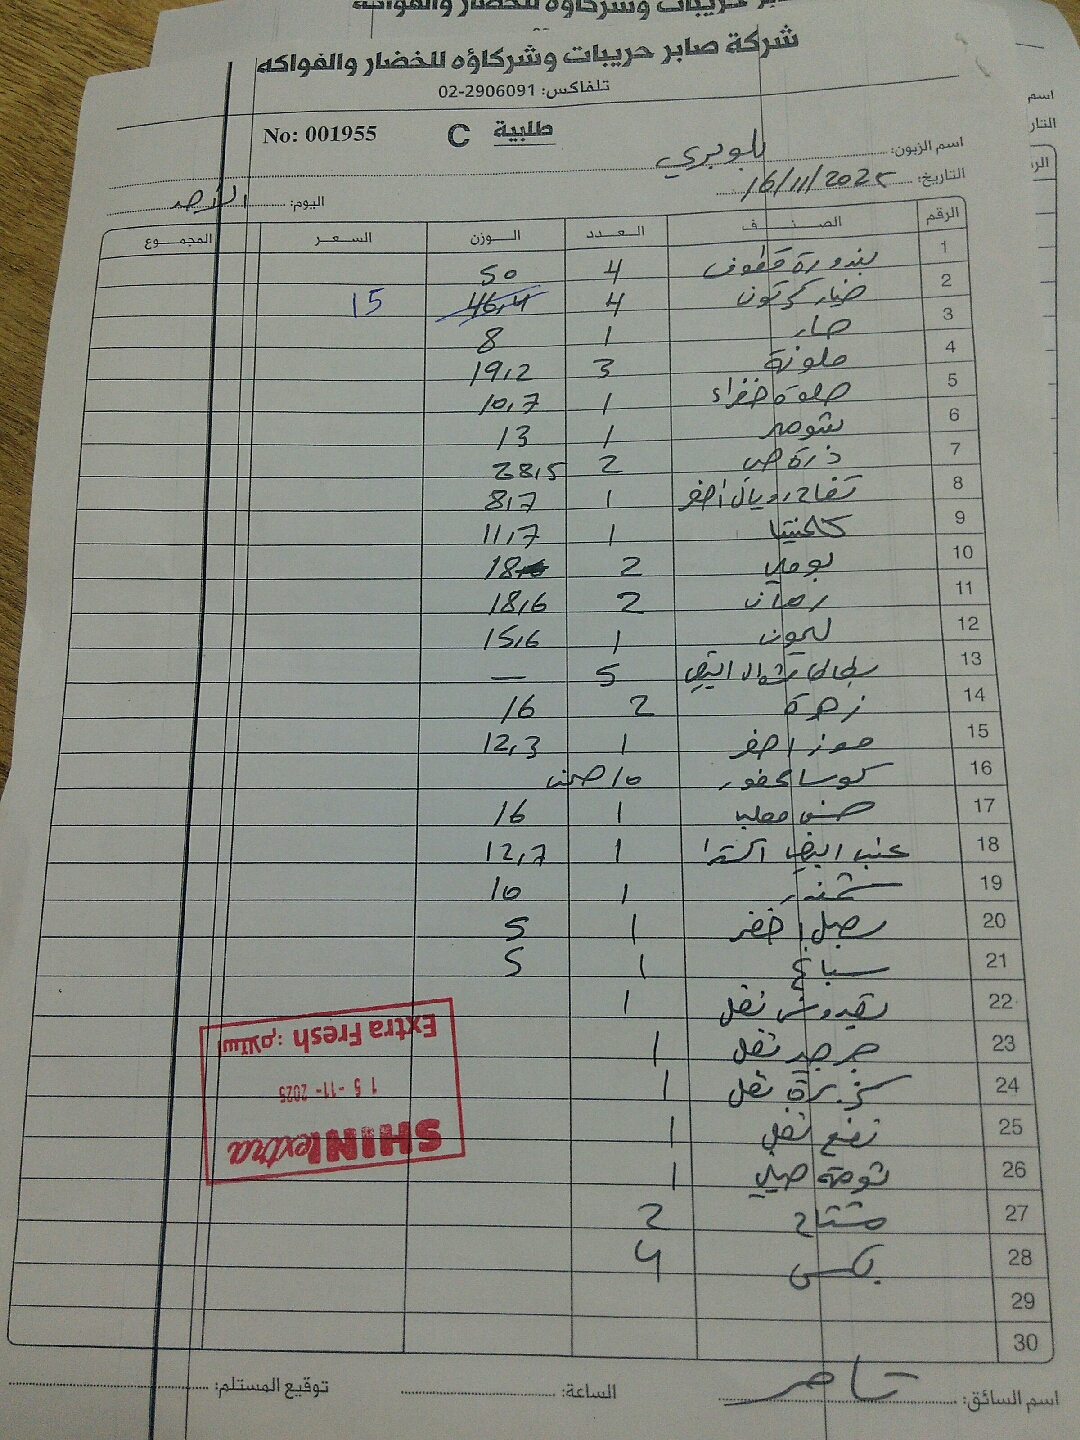 شركة صابر حريبات وشركاؤه للخضار والفواكه
تلفاكس: 02-2906091
No: 001955 C طلبية
اسم الزبون: بلوبري
التاريخ: 16/11/2025
اليوم: الأحد
الرقم الصنف العدد الوزن السعر المجموع
1 بندورة قطوف 4 50
2 خيار كرتون 4 46,4 15
3 حار 1 8
4 ملونة 3 19,2
5 حلوة خضراء 1 10,7
6 شومر 1 13
7 ذرة حب 2 28,5
8 تفاح رويال اصفر 1 8,7
9 كلمنتينا 1 11,7
10 بوملي 2 18
11 رمان 2 18,6
12 ليمون 1 15,6
13 بطاطا شوال ابيض 5 —
14 زهرة 2 16
15 موز اصفر 1 12,3
16 كوسا محفور 10 صحن
17 خس معلب 1 16
18 عنب ابيض اكسترا 1 12,7
19 شمندر 1 10
20 بصل اخضر 1 5
21 سبانخ 1 5
22 بقدونس نقل 1
23 جرجير نقل 1
24 كزبرة نقل 1
25 نعنع نقل 1
26 ثومة صيني 1
27 مشتاح 2
28 بكس 4
29
30
SHINIextra
15 -11- 2025
استلام: Extra Fresh
اسم السائق: تامر
الساعة:
توقيع المستلم: